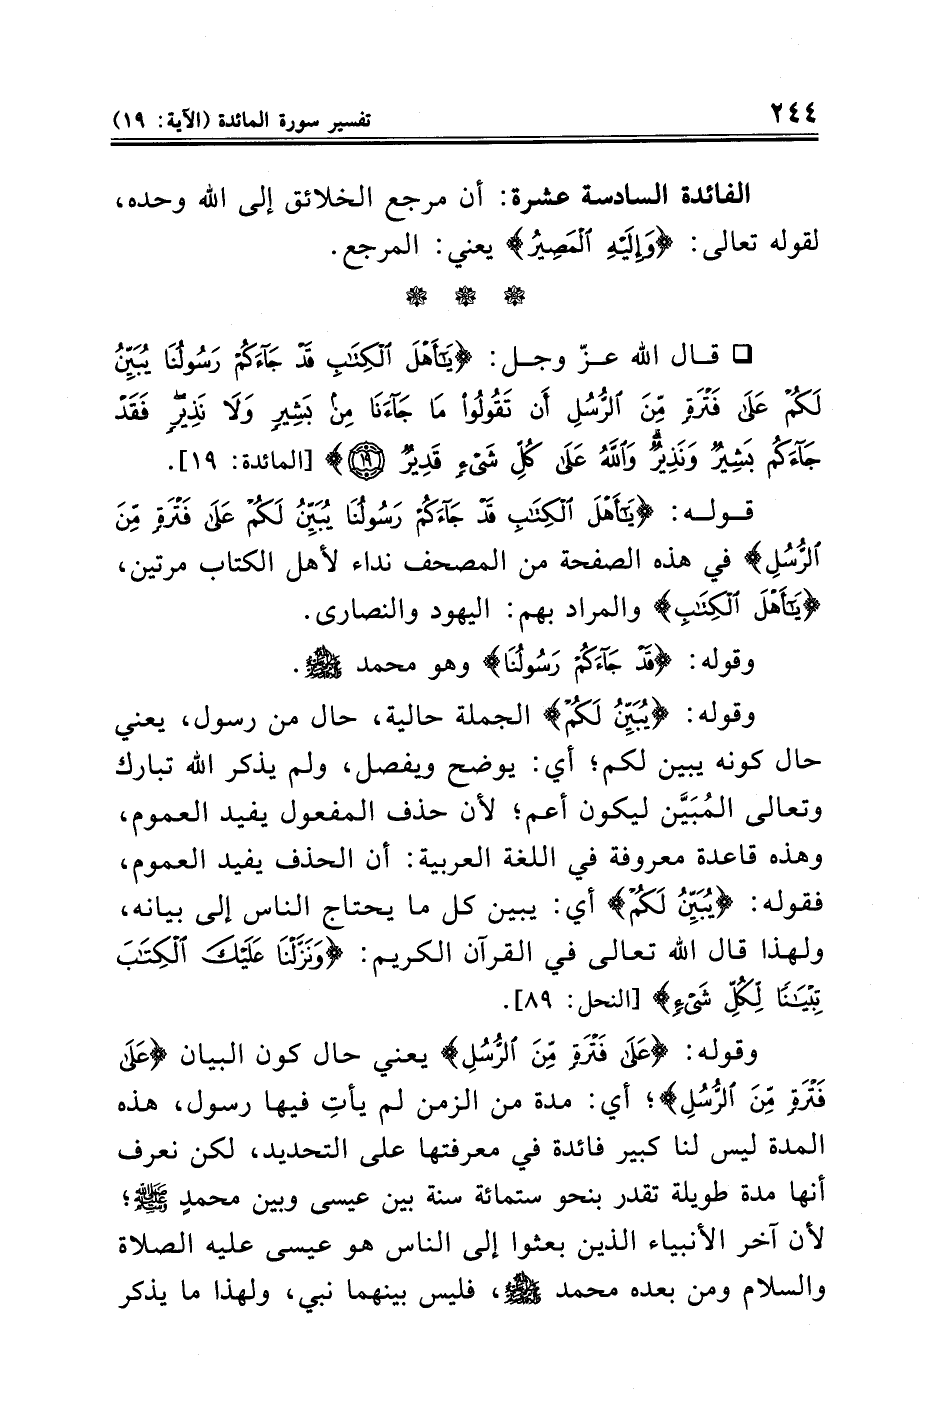 ٢٤٤ تفسير سورة المائدة (الآية: ١٩)
الفائدة السادسة عشرة: أن مرجع الخلائق إلى الله وحده،
لقوله تعالى: ﴿وَإِلَيْهِ الْمَصِيرُ﴾ يعني: المرجع.
❁ ❁ ❁
❑ قـال الله عـزّ وجـل: ﴿يَٰٓأَهْلَ ٱلْكِتَٰبِ قَدْ جَآءَكُمْ رَسُولُنَا يُبَيِّنُ
لَكُمْ عَلَىٰ فَتْرَةٍ مِّنَ ٱلرُّسُلِ أَن تَقُولُوا۟ مَا جَآءَنَا مِنۢ بَشِيرٍ وَلَا نَذِيرٍ ۖ فَقَدْ
جَآءَكُم بَشِيرٌ وَنَذِيرٌ ۗ وَٱللَّهُ عَلَىٰ كُلِّ شَىْءٍ قَدِيرٌ ١٩﴾ [المائدة: ١٩].
قـولـه: ﴿يَٰٓأَهْلَ ٱلْكِتَٰبِ قَدْ جَآءَكُمْ رَسُولُنَا يُبَيِّنُ لَكُمْ عَلَىٰ فَتْرَةٍ مِّنَ
ٱلرُّسُلِ﴾ في هذه الصفحة من المصحف نداء لأهل الكتاب مرتين،
﴿يَٰٓأَهْلَ ٱلْكِتَٰبِ﴾ والمراد بهم: اليهود والنصارى.
وقوله: ﴿قَدْ جَآءَكُمْ رَسُولُنَا﴾ وهو محمد ﷺ.
وقوله: ﴿يُبَيِّنُ لَكُمْ﴾ الجملة حالية، حال من رسول، يعني
حال كونه يبين لكم؛ أي: يوضح ويفصل، ولم يذكر الله تبارك
وتعالى المُبَيَّن ليكون أعم؛ لأن حذف المفعول يفيد العموم،
وهذه قاعدة معروفة في اللغة العربية: أن الحذف يفيد العموم،
فقوله: ﴿يُبَيِّنُ لَكُمْ﴾ أي: يبين كل ما يحتاج الناس إلى بيانه،
ولهذا قال الله تعالى في القرآن الكريم: ﴿وَنَزَّلْنَا عَلَيْكَ ٱلْكِتَٰبَ
تِبْيَٰنًا لِّكُلِّ شَىْءٍ﴾ [النحل: ٨٩].
وقوله: ﴿عَلَىٰ فَتْرَةٍ مِّنَ ٱلرُّسُلِ﴾ يعني حال كون البيان ﴿عَلَىٰ
فَتْرَةٍ مِّنَ ٱلرُّسُلِ﴾؛ أي: مدة من الزمن لم يأتِ فيها رسول، هذه
المدة ليس لنا كبير فائدة في معرفتها على التحديد، لكن نعرف
أنها مدة طويلة تقدر بنحو ستمائة سنة بين عيسى وبين محمدٍ ﷺ؛
لأن آخر الأنبياء الذين بعثوا إلى الناس هو عيسى عليه الصلاة
والسلام ومن بعده محمد ﷺ، فليس بينهما نبي، ولهذا ما يذكر